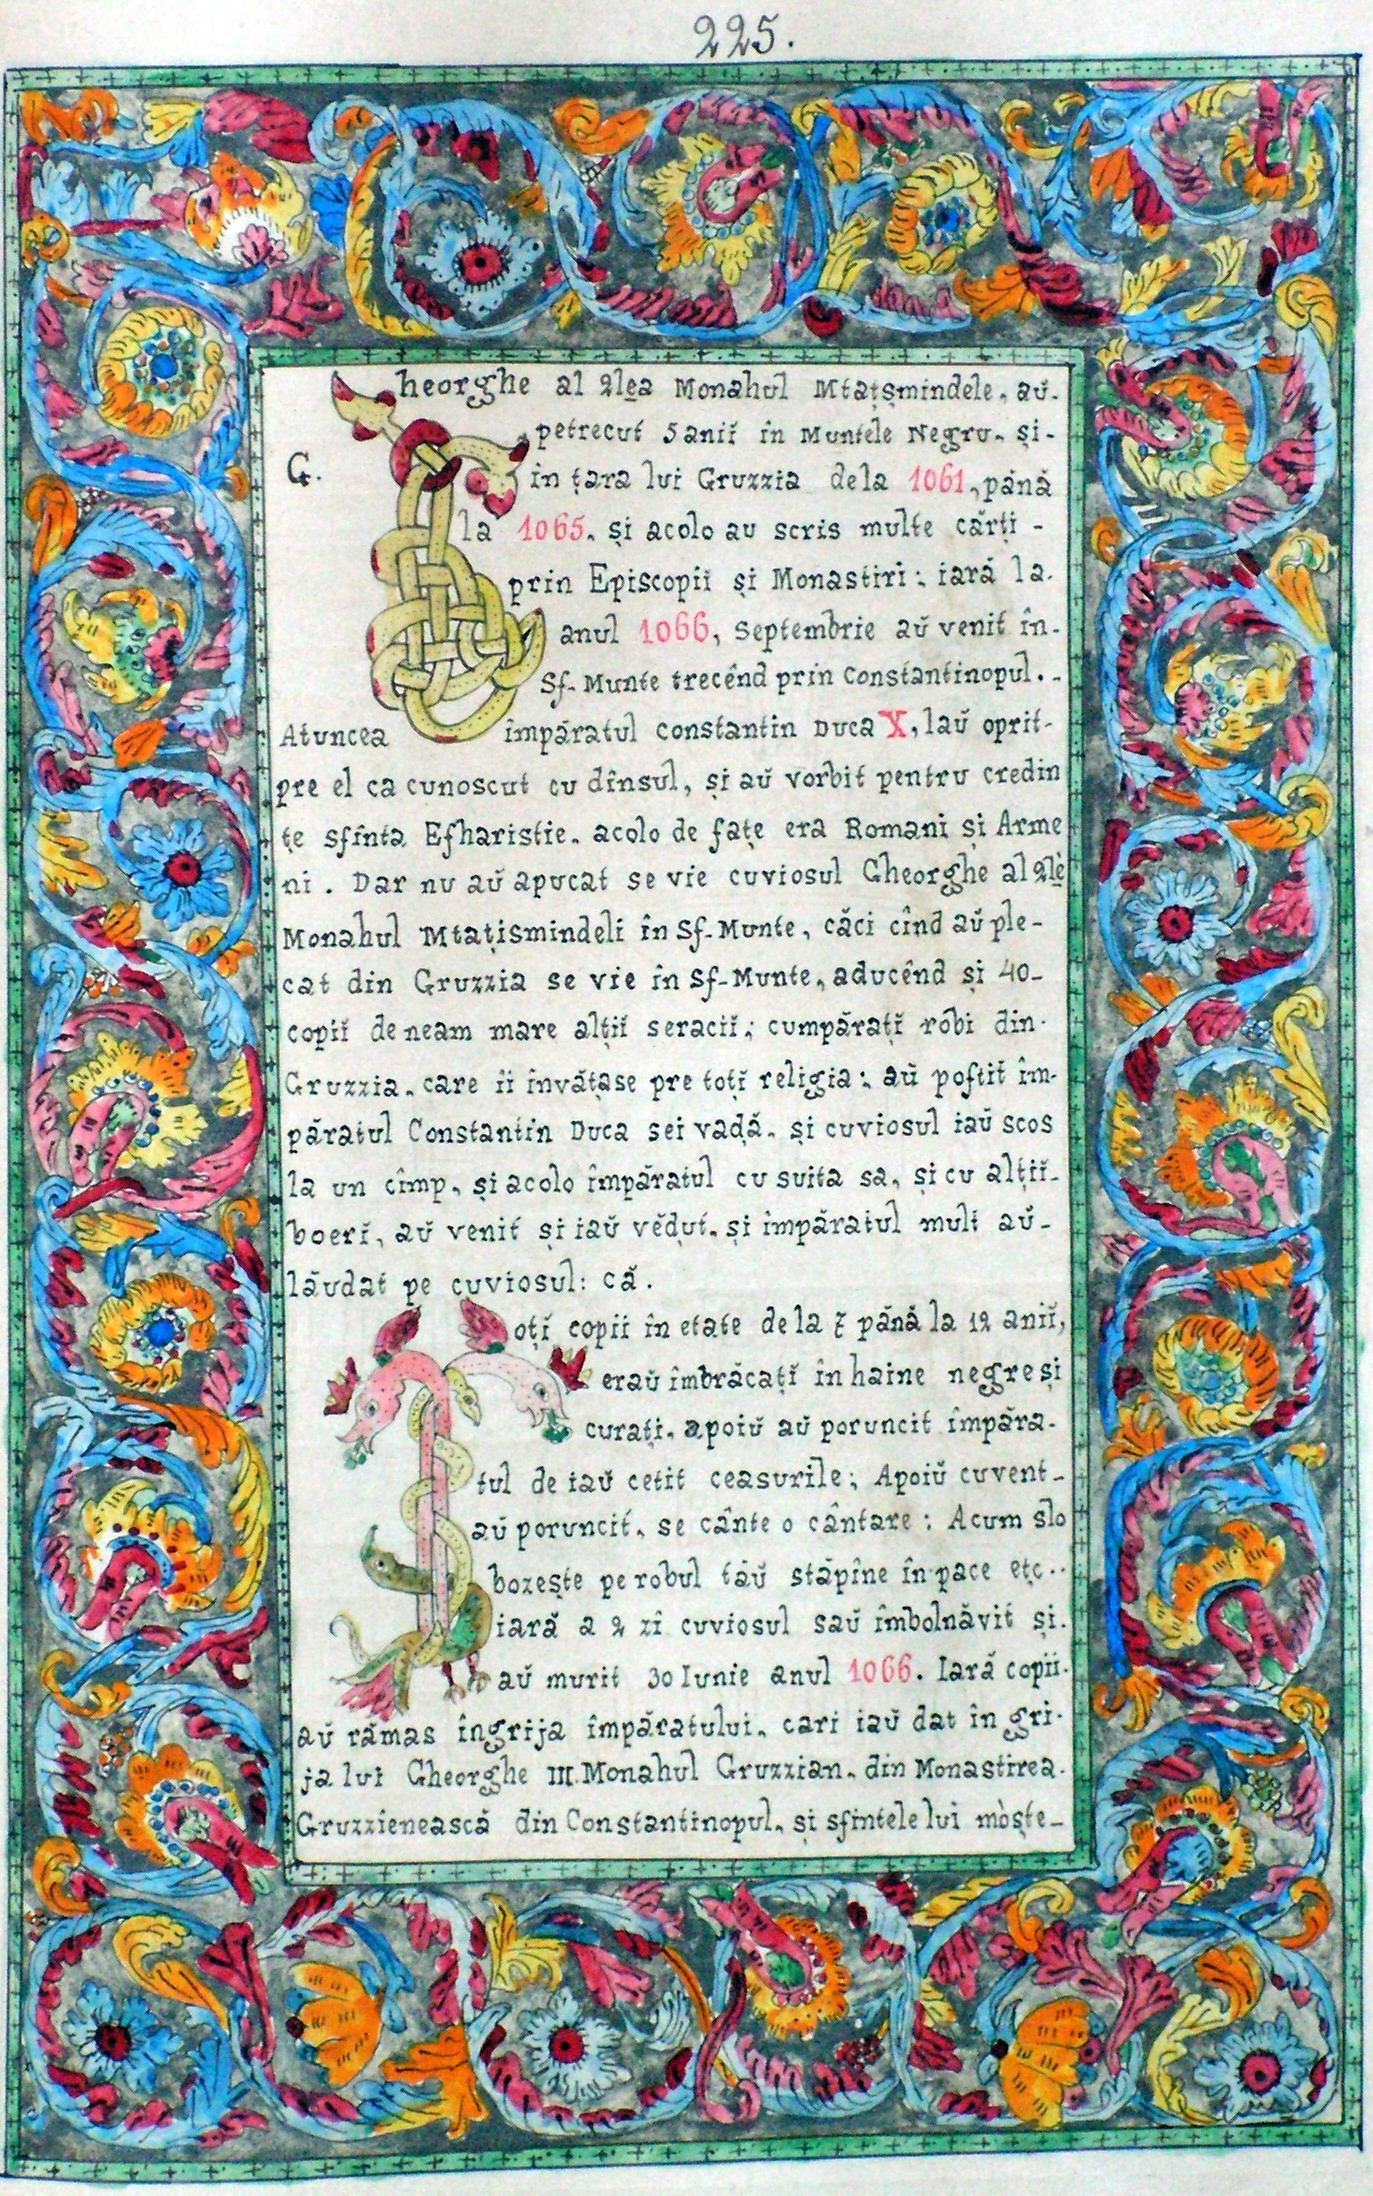 225.
heorghe al 2lea Monahul Mtațșmindele, aŭ-
petrecut 5 aniĭ în Muntele Negru. și-
G.
in țara lui Gruzzia dela 1061, până
la 1065. și acolo au scris multe cărți -
prin Episcopiĭ și Monastiri; iară la.
anul 1066, Septembrie aŭ venit în-
Sf. Munte trecênd prin Constantinopul. -
Atuncea împăratul Constantin Duca X, laŭ oprit-
pre el ca cunoscut cu dînsul, și aŭ vorbit pentru credin
țe sfînta Efharistie. acolo de fațe era Romani și Arme
ni. Dar nu aŭ apucat se vie cuviosul Gheorghe al 2lè
Monahul Mtațismindeli în Sf. Munte, căci cînd aŭ ple-
cat din Gruzzia se vie în Sf-Munte, aducênd și 40-
copiĭ de neam mare alțiĭ seraciĭ; cumpărațĭ robi din-
Gruzzia. care îi învățase pre toțĭ religia; aŭ poftit îm-
păratul Constantin Duca sei vadă. și cuviosul iaŭ scos
la un cîmp. și acolo împăratul cu suita sa, și cu alțiĭ-
boerĭ, aŭ venit și iaŭ vĕdut. și împăratul mult aŭ-
lăudat pe cuviosul: că.
oțĭ copii în etate de la 7 până la 12 aniĭ,
eraŭ îmbrăcațĭ în haine negre și
curați. apoiŭ aŭ poruncit împăra-
tul de iaŭ cetit ceasurile; Apoiŭ cuvent-
aŭ poruncit. se cânte o cântare: Acum slo
bozește pe robul tăŭ stăpîne în pace etc..
iară a 2 zi cuviosul saŭ îmbolnăvit și.
aŭ murit 30 Iunie anul 1066. Iară copii.
aŭ rămas îngrija împăratului. cari iaŭ dat în gri-
ja lui Gheorghe III. Monahul Gruzzian. din Monastirea.
Gruzzienească din Constantinopul. și sfintele lui mòște-